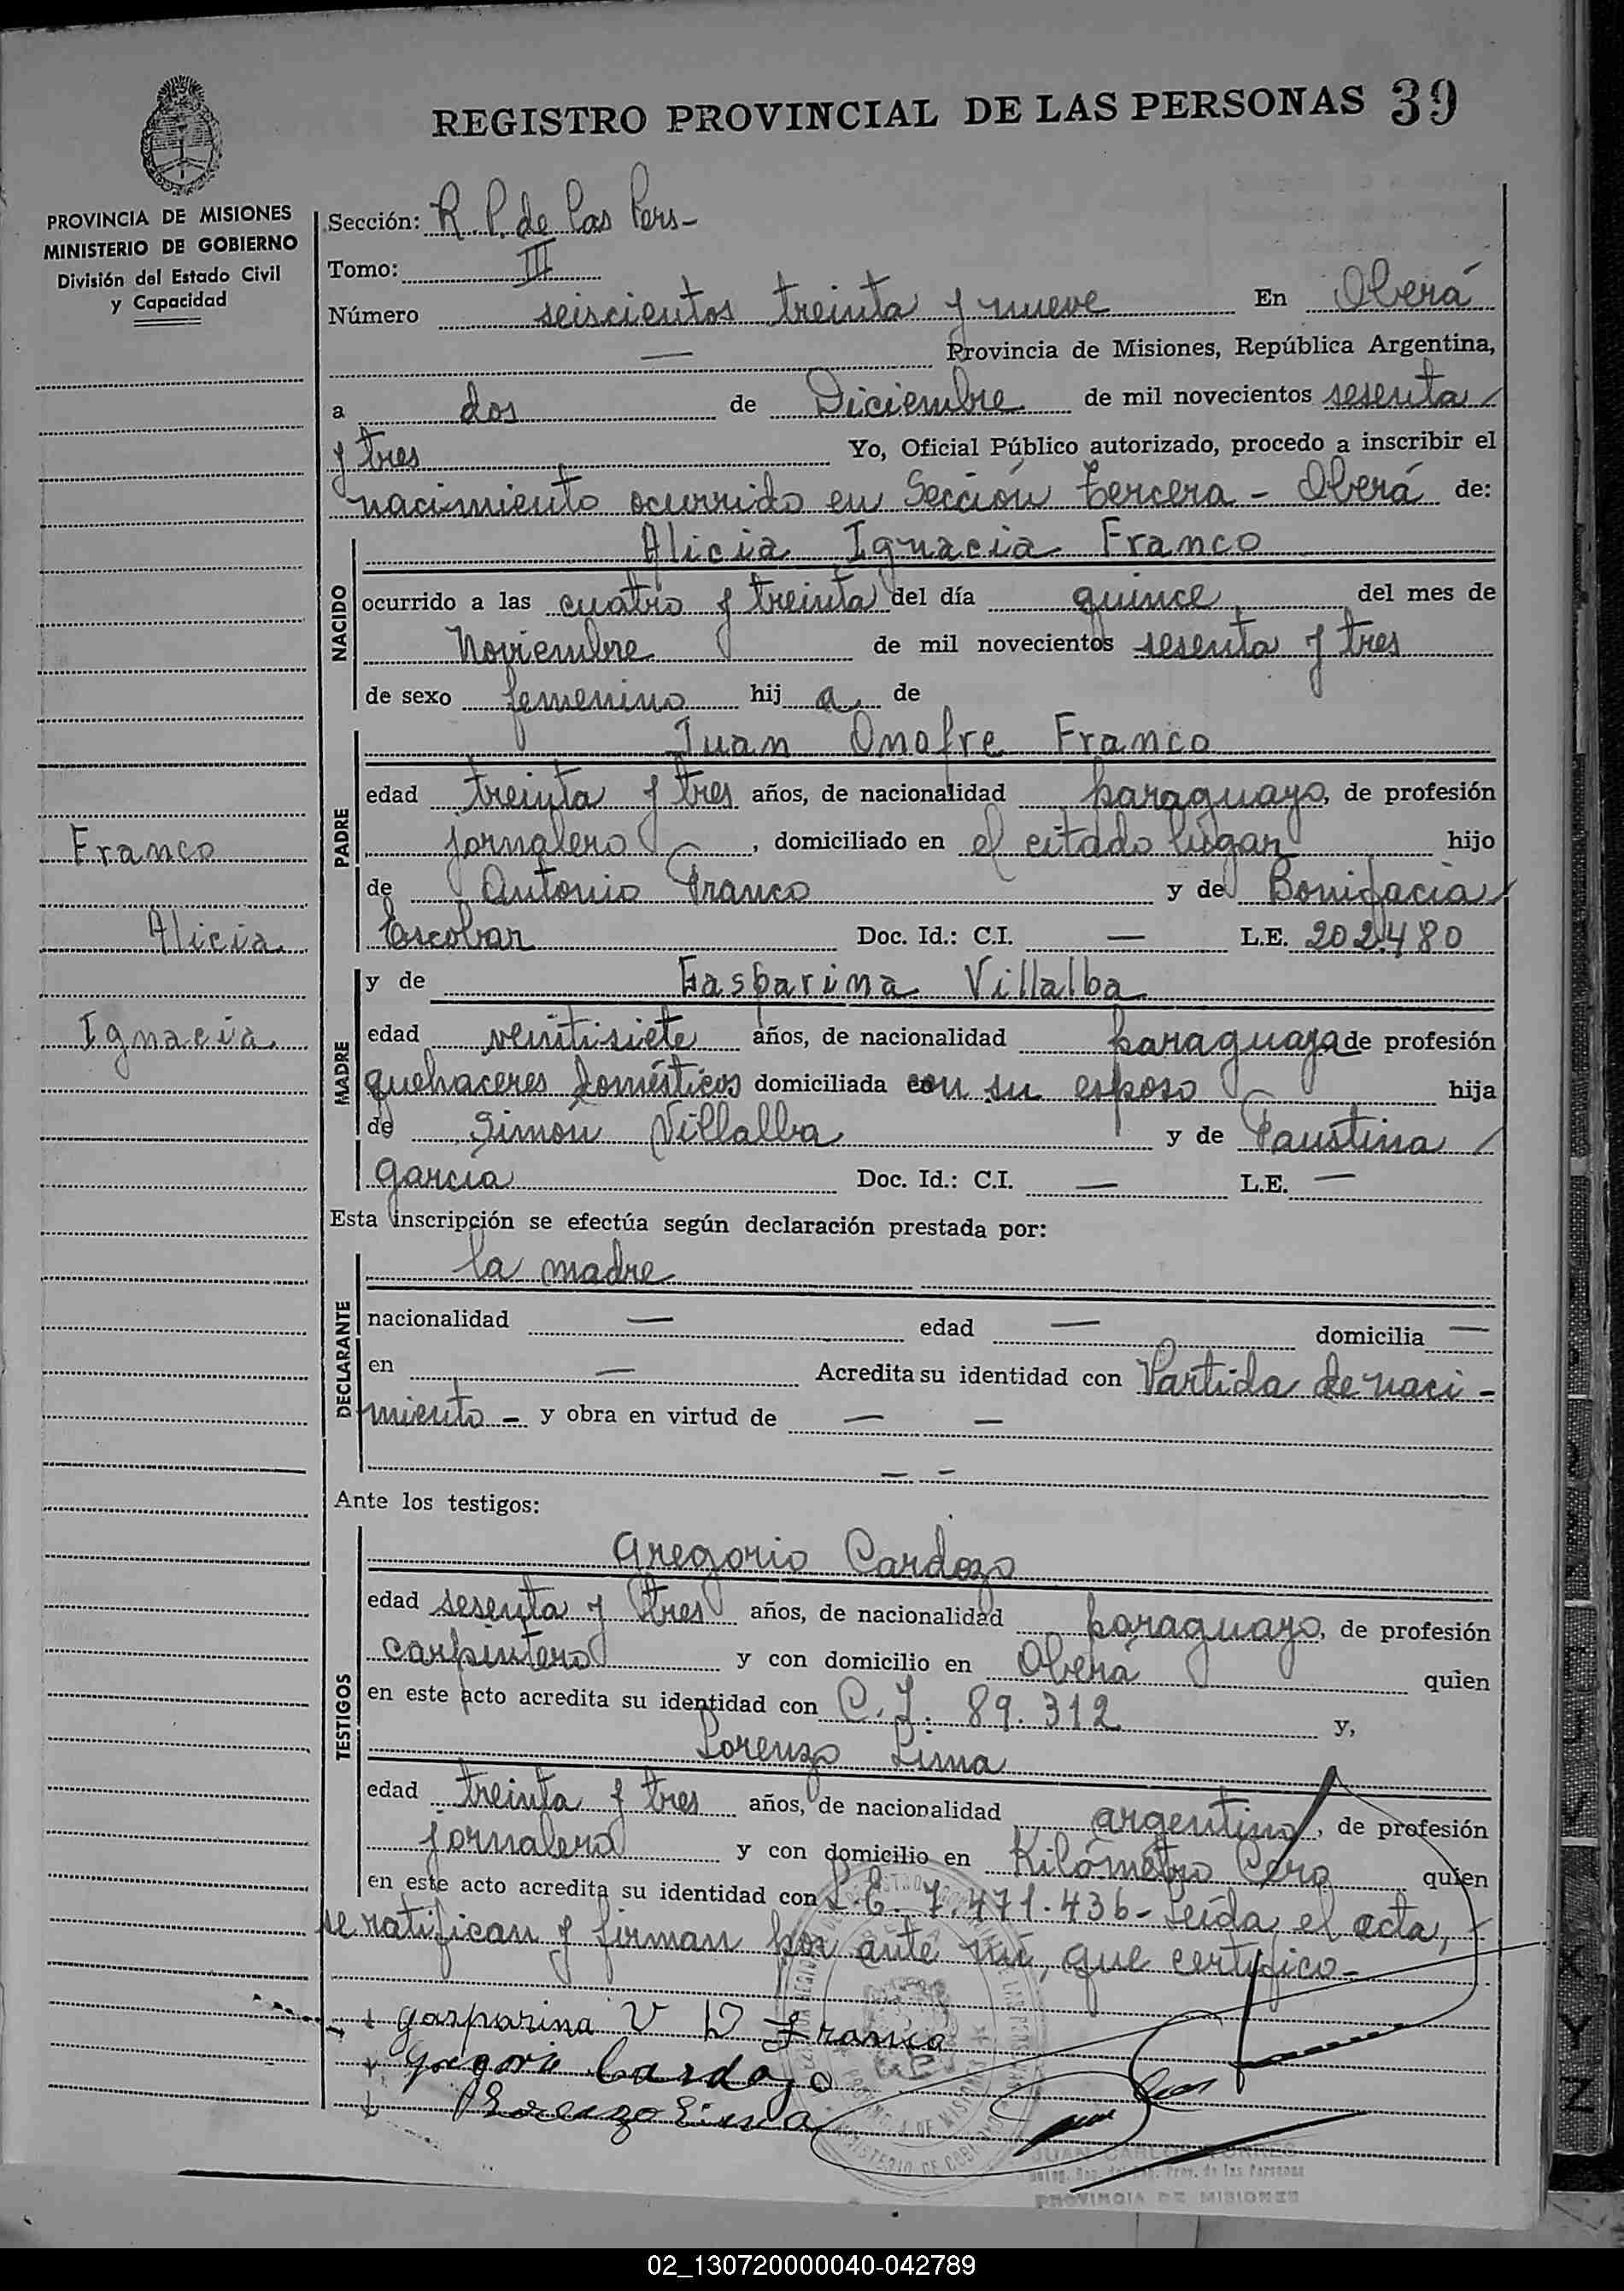 REGISTRO PROVINCIAL DE LAS PERSONAS 39
PROVINCIA DE MISIONES
MINISTERIO DE GOBIERNO
División del Estado Civil
y Capacidad
Franco
Alicia
Ignacia
Sección: R. P. de las Pers-
Tomo: III
Número seiscientos treinta y nueve En Oberá
— Provincia de Misiones, República Argentina,
a dos de Diciembre de mil novecientos sesenta
y tres Yo, Oficial Público autorizado, procedo a inscribir el
nacimiento ocurrido en Sección Tercera - Oberá de:
NACIDO
Alicia Ignacia Franco
ocurrido a las cuatro y treinta del día quince del mes de
Noviembre de mil novecientos sesenta y tres
de sexo femenino hij a de
PADRE
Juan Onofre Franco
edad treinta y tres años, de nacionalidad paraguayo, de profesión
jornalero, domiciliado en el citado lugar hijo
de Antonio Franco y de Bonifacia
Escobar Doc. Id.: C.I. — L.E. 202.480
MADRE
y de Gasparina Villalba
edad veintisiete años, de nacionalidad paraguaya de profesión
quehaceres domésticos domiciliada con su esposo hija
de Simón Villalba y de Faustina
García Doc. Id.: C.I. — L.E. —
Esta inscripción se efectúa según declaración prestada por:
DECLARANTE
la madre
nacionalidad — edad — domicilia —
en — Acredita su identidad con Partida de naci-
miento - y obra en virtud de — —
— —
Ante los testigos:
TESTIGOS
Gregorio Cardozo
edad sesenta y tres años, de nacionalidad paraguayo, de profesión
carpintero y con domicilio en Oberá quien
en este acto acredita su identidad con C.I. 89.312 y,
Lorenzo Lima
edad treinta y tres años, de nacionalidad argentino, de profesión
jornalero y con domicilio en Kilómetro Cero quien
en este acto acredita su identidad con L.E. 7.471.436- Leída el acta,
se ratifican y firman por ante mí, que certifico-
Gasparina V D Franco
Gregorio Cardozo
Lorenzo Lima
JUAN CARLOS TORRES
Prov. de las Personas
PROVINCIA DE MISIONES
02_130720000040-042789